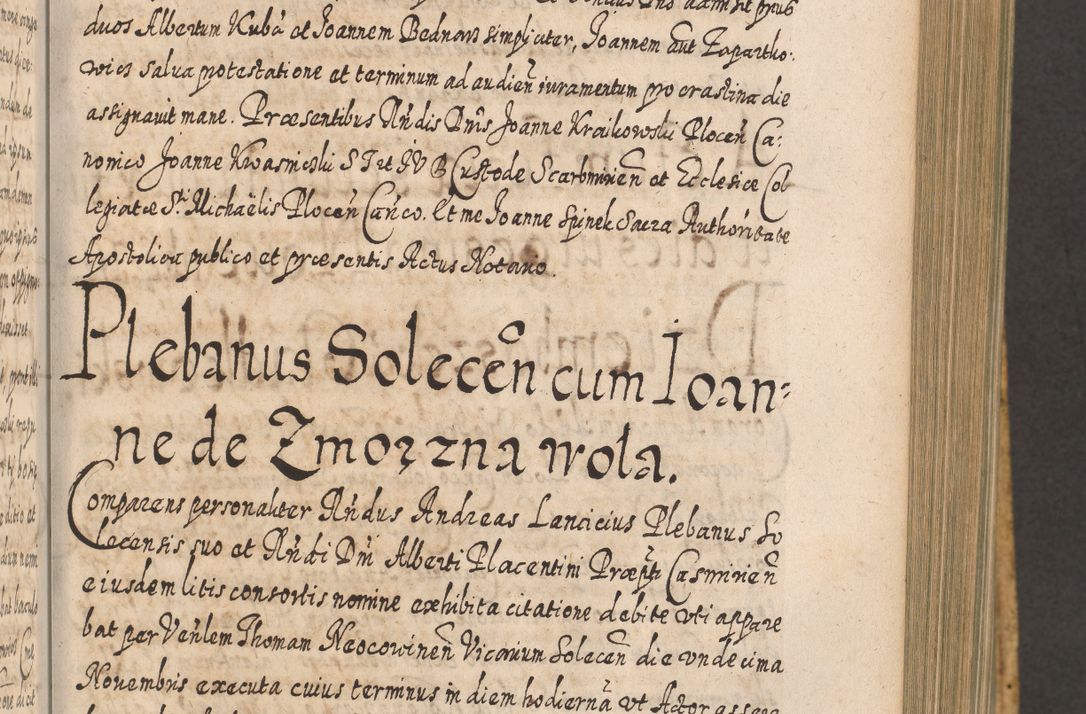 duos Albertum Kuba et Joannem Bednarz simpliciter, Joannem aut Zapartko-
wicz salua protestatione et terminum ad audien̄ iuramentum pro crastina die
assignauit mane. Præsentibus Rn̄dis Dn̄is Joanne Kraikowski Plocen̄ Ca-
nonico Joanne Kwasnicski S T et I V B Custode Scarbmirien̄ et Ecclesiæ Col
legiatæ St. Michaëlis Plocen̄ Can̄co. Et me Joanne Spinek Sacra Authoritate
Apostolica publico et præsentis Actus Notario.
Plebanus Solecen̄ cum Ioan-
ne de Zmorzzna wola.
Comparens personaliter Rn̄dus Andreas Lancicius Plebanus So
lecensis suo et Rn̄di Dn̄i Alberti Placentini Præpti Casmirien̄
eiusdem litis consortis nomine exhibita citatione debite vti appare
bat per Ven̄lem Thomam Neocowinen̄ Vicarium Solecen̄ die vndecima
Nouembris executa cuius terminus in diem hodiernā vt Actor